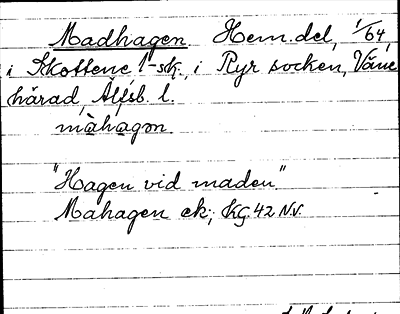 Madhagen Hem.del, 1/64,
i Skottene 1-sk., i Ryr socken, Väne
härad, Älfsb. l.
màhagən
"Hagen vid maden"
Mahagen ek; Kg. 42 N.V.